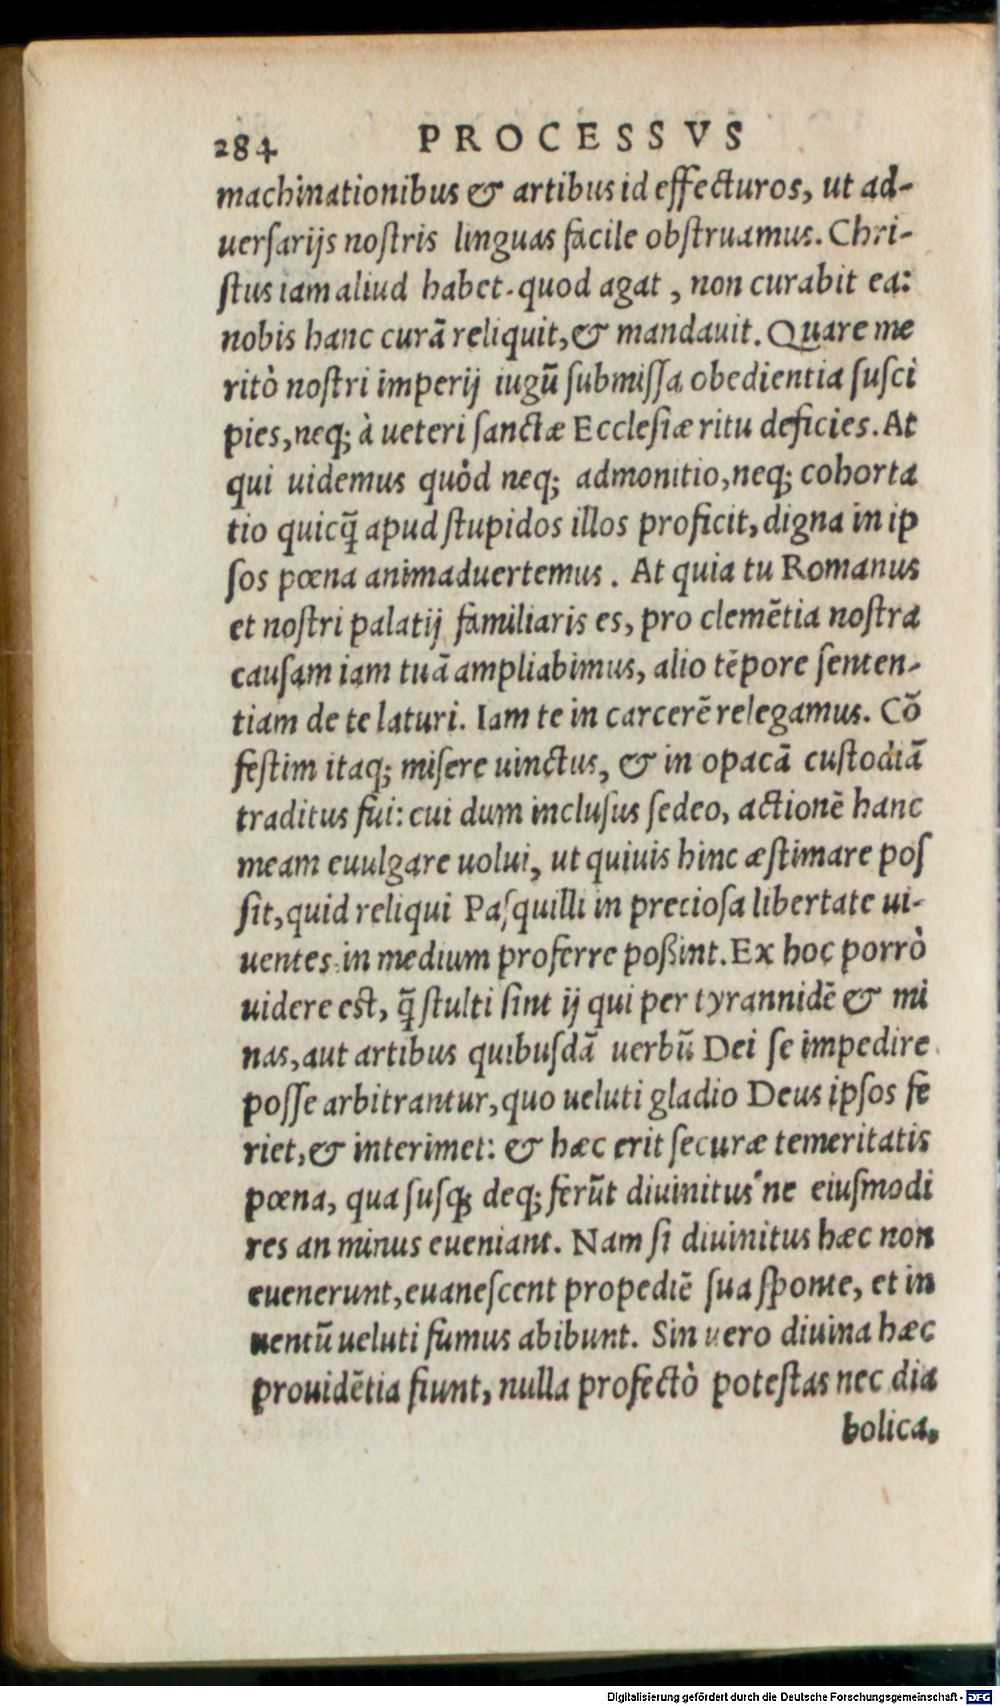 284 PROCESSVS
machinationibus & artibus id effecturos, ut ad-
uersarijs nostris linguas facile obstruamus. Chri-
stus iam aliud habet quod agat, non curabit ea:
nobis hanc curā reliquit, & mandauit. Quare me
ritò nostri imperij iugū submissa obedientia susci
pies, neq; à ueteri sanctæ Ecclesiæ ritu deficies. At
qui uidemus quòd neq; admonitio, neq; cohorta
tio quicq̃ apud stupidos illos proficit, digna in ip
sos pœna animaduertemus. At quia tu Romanus
et nostri palatij familiaris es, pro clemētia nostra
causam iam tuā ampliabimus, alio tēpore senten-
tiam de te laturi. Iam te in carcerē relegamus. Cō
festim itaq; misere uinctus, & in opacā custodiā
traditus fui: cui dum inclusus sedeo, actionē hanc
meam euulgare uolui, ut quiuis hinc æstimare pos
sit, quid reliqui Pasquilli in preciosa libertate ui-
uentes in medium proferre poßint. Ex hoc porrò
uidere est, q̃ stulti sint ij qui per tyrannidē & mi
nas, aut artibus quibusdā uerbū Dei se impedire
posse arbitrantur, quo ueluti gladio Deus ipsos fe
riet, & interimet: & hæc erit securæ temeritatis
pœna, qua susq; deq; ferūt diuinitus ne eiusmodi
res an minus eueniant. Nam si diuinitus hæc non
euenerunt, euanescent propediē sua sponte, et in
uentū ueluti fumus abibunt. Sin uero diuina hæc
prouidētia fiunt, nulla profectò potestas nec dia
bolica,
Digitalisierung gefördert durch die Deutsche Forschungsgemeinschaft - DFG